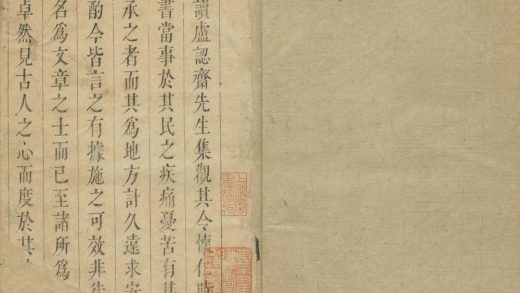 讀盧認齋先生集觀其令懷仁時
書當事於其民之疾痛憂苦有其
承之者而其為地方計久遠求安
酌今皆言之有據施之可效非徒
名為文章之士而已至諸所為
卓然見古人之心而度於其